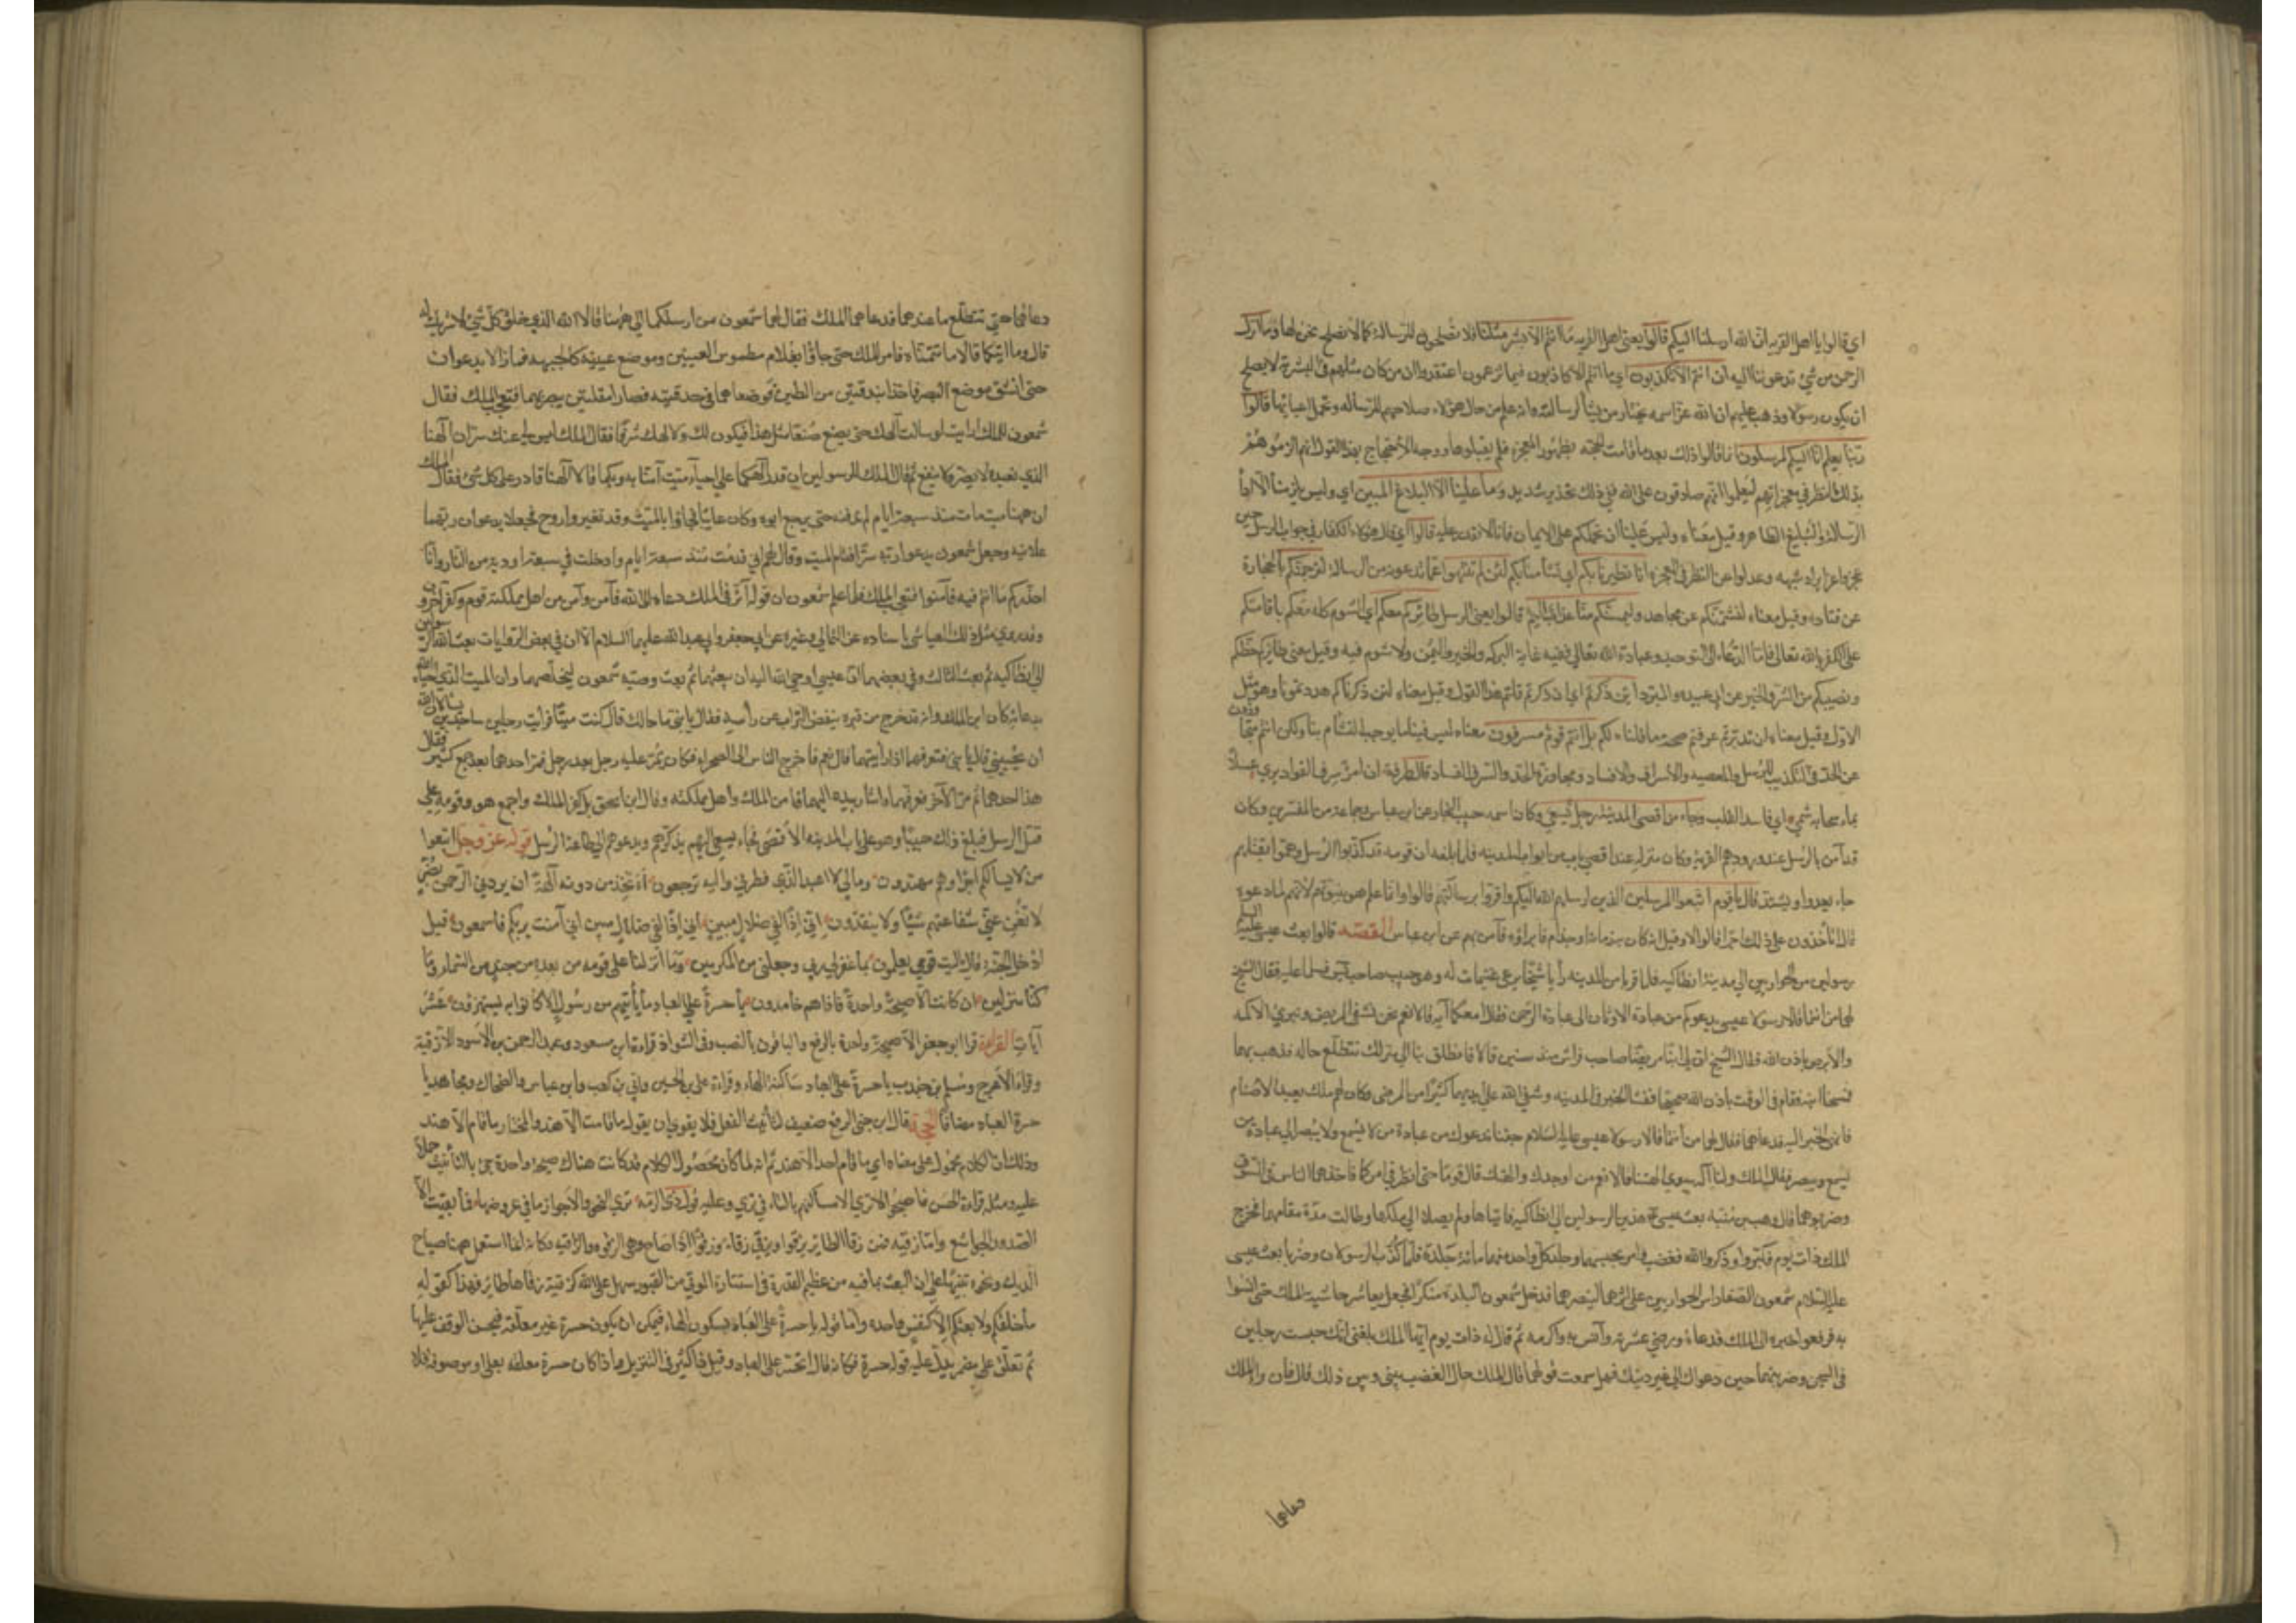 اي قالوا يا اهل القرية ان الله ارسلنا اليكم قالوا يعني اهل القرية ما انتم الا بشر مثلنا فلا تصلحون للرسالة كما لا نصلح نحن لها وما انزل
الرحمن من شئ تدعوننا اليه ان انتم الا تكذبون اي ما انتم الا كاذبون فيما تزعمون اعتقدوا ان من كان مثلهم في البشرية لا يصلح
ان يكون رسولا وذهب عليهم ان الله عز اسمه يختار من يشأ لرسالته وانه علم من حال هؤلاء صلاحهم للرسالة وتحمل اعبائها قالوا
ربنا يعلم انا اليكم لمرسلون انما قالوا ذلك بعد ما قامت الحجة بظهور المعجزة فلم يقبلوها ووجه الاحتجاج بهذا القول انهم الزموهم
بذلك النظر في معجزاتهم ليعلموا انهم صادقون على الله ففي ذلك تحذير شديد وما علينا الا البلاغ المبين اي وليس يلزمنا الا اداء
الرسالة والتبليغ الظاهر وقيل معناه وليس علينا ان نحملكم على الايمان فانا لا نقدر عليه قالوا اي قال هؤلاء الكفار في جواب الرسل حين
عجزوا عن ايراد شبهه وعدلوا عن النظر في المعجزة انا تطيرنا بكم اي تشأمنا بكم لئن لم تنتهوا عما تدعونه من الرسالة لنرجمنكم بالحجارة
عن قتادة وقيل معناه لنشتمنكم عن مجاهد وليمسنكم منا عذاب اليم قالوا يعني الرسل طائركم معكم اي الشوم كله معكم باقامتكم
على الكفر بالله تعالى فاما الدعاء الى التوحيد وعبادة الله تعالى ففيه غاية البركه والخير واليمن ولا شوم فيه وقيل معنى طائركم حظكم
ونصيبكم من الشر والخير عن ابي عبيده والمبرد اين ذكرتم اي ان ذكرتم قلتم هذا القول وقيل معناه لئن ذكرناكم هددتمونا وهو مثل
الاول وقيل معناه ان تدبرتم عرفتم صحة ما قلناه لكم بل انتم قوم مسرفون معناه ليس فينا ما يوجب التشأم بنا ولكن انتم متجاوزون
عن الحد في التكذيب للرسل والمعصيه والاسراف والافساد ومجاوزة الحد والسرف الفساد قال طرفة ان امرأ سرف الفواد يرى عسلا
بماء سحابة شتمي اي فاسد القلب وجاء من اقصى المدينة رجل يسعى وكان اسمه حبيب النجار عن ابن عباس وجماعة من المفسرين وكان
قد آمن بالرسل عند ورودهم القرية وكان منزله عند اقصى باب من ابواب المدينه فلما بلغه ان قومه قد كذبوا الرسل وهموا بقتلهم
جاء يعدوا ويشتد قال يا قوم اتبعوا المرسلين الذين ارسلهم الله اليكم واقروا برسالتهم قالوا وانما علم هو بنبوتهم لانهم لما دعوه
قال اتأخذون على ذلك اجرا قالوا لا وقيل انه كان به زمانة او جذام فابرأوه فآمن بهم عن ابن عباس القصه قالوا بعث عيسى عليه السلام
رسولين من الحواريين الى مدينة انطاكيه فلما قربا من المدينه رأيا شيخا يرعى غنيمات له وهو حبيب صاحب يس فسلما عليه فقال الشيخ
لهما من انتما قالا رسولا عيسى يدعوكم من عبادة الاوثان الى عبادة الرحمن فقال امعكما آية قالا نعم نحن نشفي المريض ونبرئ الاكمه
والابرص باذن الله فقال الشيخ ان لي ابنا مريضا صاحب فراش منذ سنين قالا فانطلق بنا الى منزلك نتطلع حاله فذهب بهما
فمسحا ابنه فقام في الوقت باذن الله صحيحا ففشا الخبر في المدينه وشفى الله على ايديهما كثيرا من المرضى وكان لهم ملك يعبد الاصنام
فانهى الخبر اليه فدعاهما فقال لهما من انتما قالا رسولا عيسى عليه السلام جئنا ندعوك من عبادة من لا يسمع ولا يبصر الى عبادة من
يسمع ويبصر فقال الملك ولنا آله سوى آلهتنا قالا نعم من اوجدك وآلهتك قال قوما حتى انظر في امركما فاخذهما الناس في السوق
وضربوهما قال وهب بن منبه بعث عيسى ع هذين الرسولين الى انطاكيه فاتياها ولم يصلا الى ملكها وطالت مدة مقامهما فخرج
الملك ذات يوم فكبروا وذكروا الله فغضب فامر بحبسهما وجلد كل واحد منهما مائة جلدة فلما كذب الرسولان وضربا بعث عيسى
عليه السلام شمعون الصفا راس الحواريين على اثرهما لينصرهما فدخل شمعون البلدة متنكرا فجعل يعاشر حاشية الملك حتى انسوا
به فرفعوا خبره الى الملك فدعاه ورضي عشرته وآنس به واكرمه ثم قال له ذات يوم ايها الملك بلغني انك حبست رجلين
في السجن وضربتهما حين دعواك الى غير دينك فهل سمعت قولهما قال الملك حال الغضب بيني وبين ذلك قال فان رأى الملك
دعاهما
دعاهما حتى نتطلع ما عندهما فدعاهما الملك فقال لهما شمعون من ارسلكما الى ههنا قالا الله الذي خلق كل شئ لا شريك له
قال وما آيتكما قالا ما تتمناه فامر الملك حتى جاؤا بغلام مطموس العينين وموضع عينيه كالجبهه فما زالا يدعوان
حتى انشق موضع البصر فاخذا بندقتين من الطين فوضعاهما في حدقتيه فصارا مقلتين يبصر بهما فتعجب الملك فقال
شمعون للملك ارايت لو سالت آلهك حتى يصنع صنعا مثل هذا فيكون لك ولالهك شرفا فقال الملك ليس لي عنك سر ان آلهنا
الذي نعبده لا يضر ولا ينفع ثم قال الملك للرسولين ان قدر آلهكما على احياء ميت آمنا به وبكما قالا آلهنا قادر على كل شئ فقال الملك
ان ههنا ميتا مات منذ سبعة ايام لم ندفنه حتى يرجع ابوه وكان غائبا فجاؤا بالميت وقد تغير واروح فجعلا يدعوان ربهما
علانيه وجعل شمعون يدعوا ربه سرا فقام الميت وقال لهم اني قدمت منذ سبعة ايام وادخلت في سبعة اودية من النار وانا
احذركم ما انتم فيه فآمنوا فتعجب الملك فلما علم شمعون ان قوله آثر في الملك دعاه الى الله فآمن وآمن من اهل مملكته قوم وكفر آخرون
وقد روى مثل ذلك العياشي باسناده عن الثمالي وغيره عن ابي جعفر وابي عبد الله عليهما السلام الا ان في بعض الروايات بعث الله الرسولين
الى انطاكيه ثم بعث الثالث وفي بعضها ان عيسى اوحى الله اليه ان يبعثهما ثم بعث وصيه شمعون ليخلصهما وان الميت الذي احياه الله
بدعائه كان ابن الملك وانه قد خرج من قبره ينفض التراب عن رأسه فقال يا بني ما حالك قال كنت ميتا فرأيت رجلين ساجدين يسالان الله
ان يحييني قال يا بني فتعرفهما اذا رأيتهما قال نعم فاخرج الناس الى الصحراء فكان يمر عليه رجل بعد رجل فمر احدهما بعد جمع كثير فقال
هذا احدهما ثم مر الآخر فعرفهما واشار بيده اليهما فآمن الملك واهل مملكته وقال ابن اسحق بل كفر الملك واجمع هو وقومه على
قتل الرسل فبلغ ذلك حبيبا وهو على باب المدينه الاقصى فجاء يسعى اليهم يذكرهم ويدعوهم الى طاعة الرسل قوله عز وجل اتبعوا
من لا يسالكم اجرا وهم مهتدون ومالي لا اعبد الذي فطرني واليه ترجعون أاتخذ من دونه آلهة ان يردني الرحمن بضر
لا تغن عني شفاعتهم شيئا ولا ينقذون اني اذا لفي ضلال مبين اني اذا لفي ضلال مبين اني آمنت بربكم فاسمعون قيل
ادخل الجنة قال يا ليت قومي يعلمون بما غفر لي ربي وجعلني من المكرمين وما انزلنا على قومه من بعده من جند من السماء وما
كنا منزلين ان كانت الا صيحة واحدة فاذا هم خامدون يا حسرة على العباد ما يأتيهم من رسول الا كانوا به يستهزؤن عشر
آيات القراءة قرا ابو جعفر الا صيحة واحدة بالرفع والباقون بالنصب وفي الشواذ قراءة ابن مسعود وعبد الرحمن بن الاسود الا زقية
وقراءة الاعرج ومسلم بن جندب يا حسرة على العباد ساكنة الهاء وقراءة علي بن الحسين وابي بن كعب وابن عباس والضحاك ومجاهد يا
حسرة العباد مضافا الحجة قال ابن جني الرفع ضعيف لتأنيث الفعل فلا يقوى ان يقول ما قامت الا هند والمختار ما قام الا هند
وذلك ان الكلام محمول على معناه اي ما قام احد الا هند ثم انه لما كان محصول الكلام قد كانت هناك صيحة واحدة جئ بالتأنيث حملا
عليه ومثله قراءة الحسن فاصبحوا لا ترى الا مساكنهم بالتاء في ترى وعليه قول ذي الرمة برى النحز والاجراز ما في غروضها فما بقيت الا
الصدور الجراشع واما زقيه فمن زقا الطاير يزقوا ويزقي زقاء وزقوا اذا صاح وهي الزقوه والزقيه وكانه انما استعمل ههنا صياح
الديك ونحوه تنبيها على ان البعث بما فيه من عظيم القدرة في استثارة الموتى من القبور سهل على الله كزقية زقاها طائر فهذا كقوله
ما خلقكم ولا بعثكم الا كنفس واحده واما قوله يا حسرة على العباد بسكون الهاء فيمكن ان يكون حسرة غير معلقة فيحسن الوقف عليها
ثم تعلق على بمضمر يدل عليه قوله حسرة فكانه قال اتحسر على العباد وقيل فاكثر في التنزيل هذا كان حسرة معلقه بعلى او موصوفه فلا